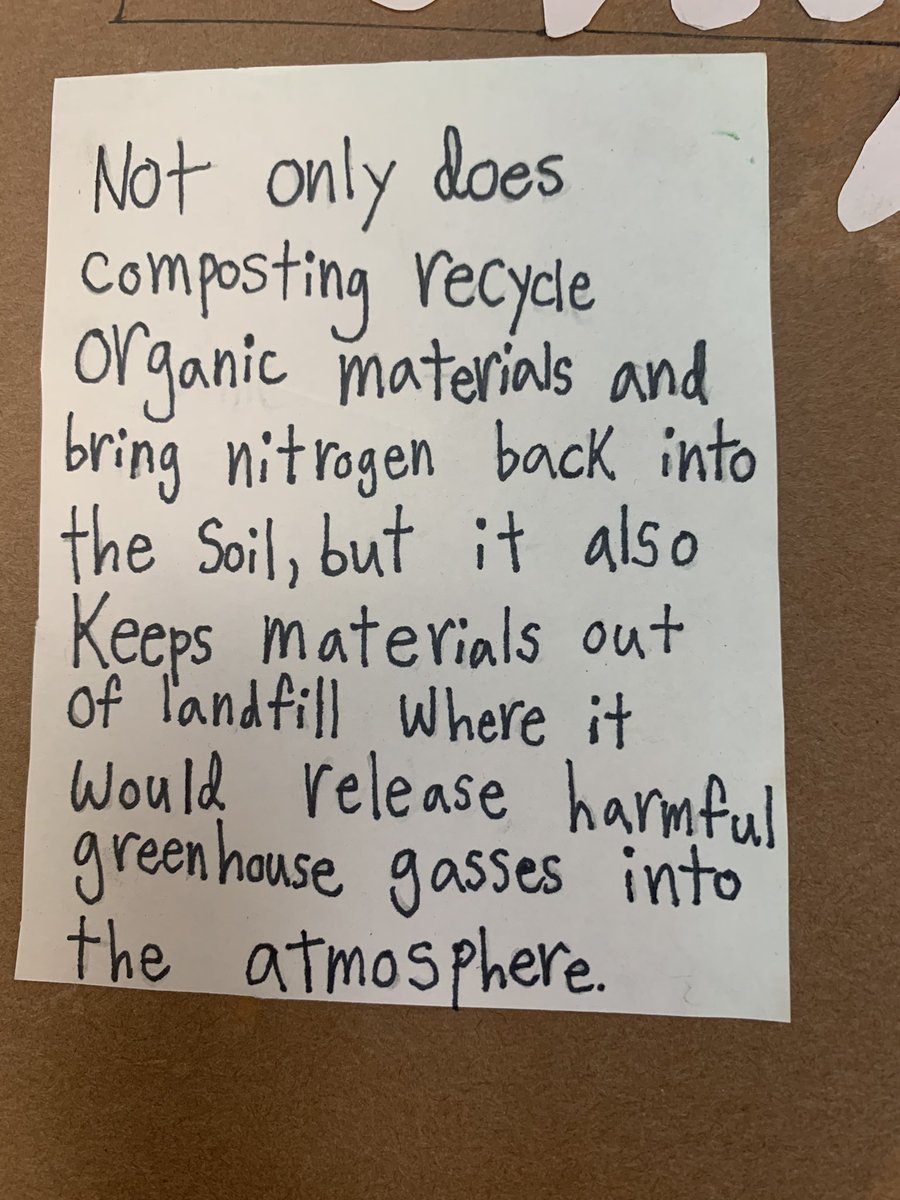 Not only does
composting recycle
organic materials and
bring nitrogen back into
the soil, but it also
Keeps materials out
of landfill where it
would release harmful
greenhouse gasses into
the atmosphere.